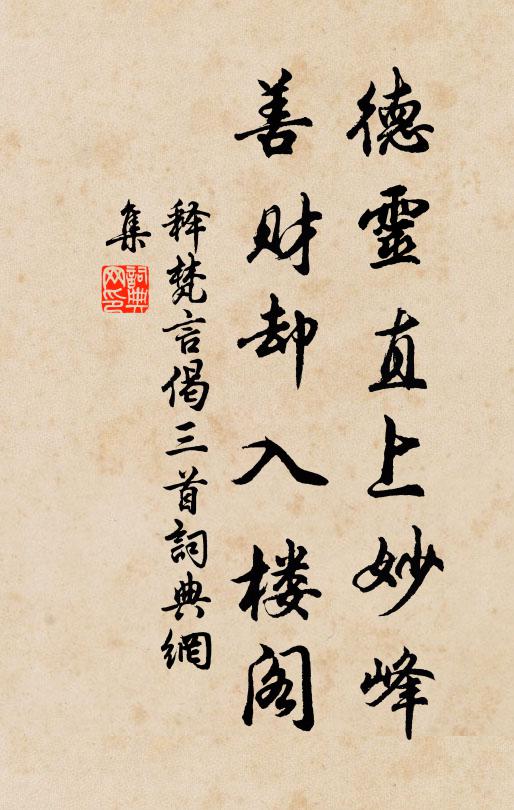 德靈直上妙峰
善財却入楼阁
释梵言偈三首詞典網
集
詞典
网印